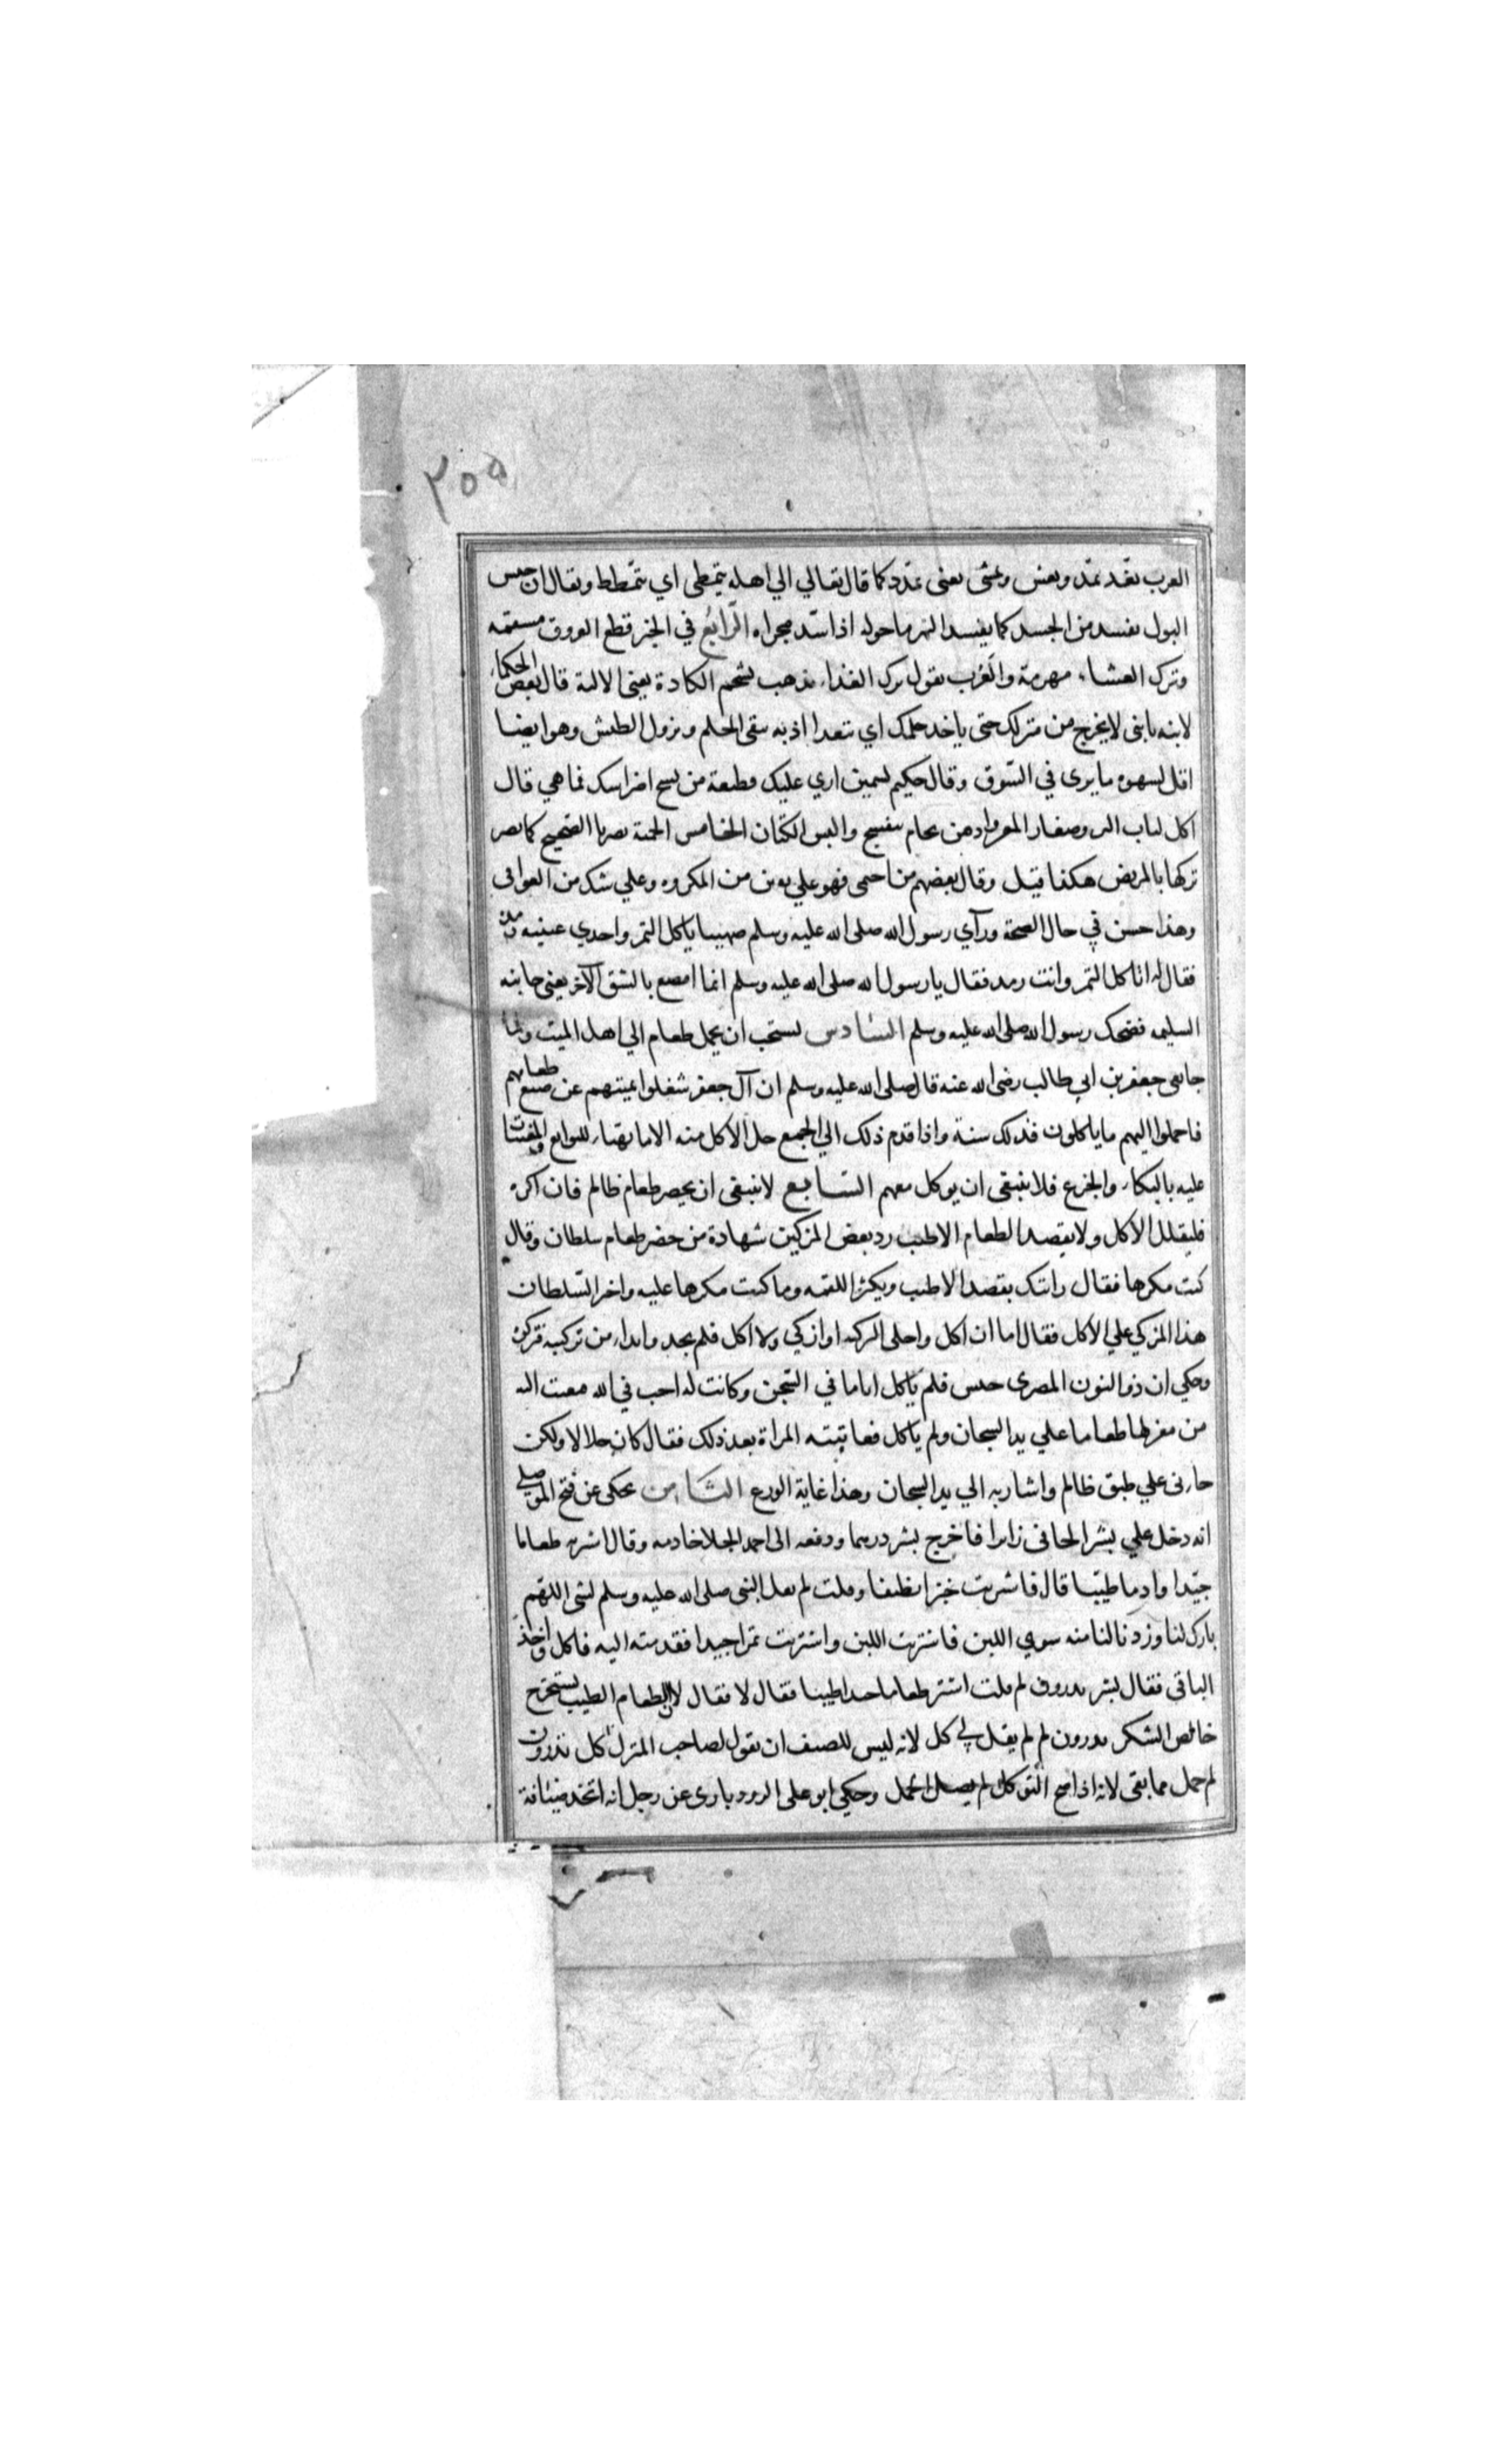 ٣٥٥
العرب تغد تمد وتعش وتمشى يعنى تمدد كما قال تعالي الي اهله يتمطى اي يتمطط ويقال ان حبس
البول يفسد من الجسد كما يفسد النهر ما حوله اذا سد مجراه الرابع في الخبر قطع العروق مسقمه
وترك العشاء مهرمة والعرب تقول ترك الغذاء يذهب بشحم الكادة يعنى الالية قال بعض الحكماء
لابنه يا بنى لا يخرج من منزلك حتى ياخذ حلمك اي تتغدا اذ به يبقى الحلم ويزول الطيش وهو ايضا
اقل لسهوه ما يرى في السوق وقال حكيم لسمين اري عليك قطيعة من نسج اضراسك فما هي قال
اكل لباب البر وصغار المعز وادهن بجام بنفسج والبس الكتان الخامس الحمية تضر بالصحيح كما يضر
تركها بالمريض هكذا قيل وقال بعضهم من احتمى فهو علي يقين من المكروه وعلي شك من العوافى
وهذا حسن في حال الصحة ورآي رسول الله صلى الله عليه وسلم صهيبا ياكل التمر واحدي عينيه رمدة
فقال له اتاكل التمر وانت رمد فقال يا رسول الله صلى الله عليه وسلم انما امضغ بالشق الآخر يعنى جانبه
السليم فضحك رسول الله صلى الله عليه وسلم السادس يستحب ان يحمل طعام الي اهل الميت ولما
جا نعى جعفر بن ابي طالب رضى الله عنه قال صلى الله عليه وسلم ان آل جعفر شغلوا بميتهم عن صنع طعامهم
فاحملوا اليهم ما ياكلون فذلك سنة واذا قدم ذلك الي الجمع حل الاكل منه الا ما يهيا للنوايح والمعينات
عليه بالبكاء والجزع فلا ينبغى ان يوكل معهم السابع لا ينبغى ان يحضر طعام ظالم فان اكره
فليقلل الاكل ولا يقصد الطعام الاطيب رد بعض المزكين شهادة من حضر طعام سلطان وقال
كنت مكرها فقال رايتك تقصد الاطيب وتكثر اللقمه وما كنت مكرها عليه واخبر السلطان
هذا المزكي علي الاكل فقال اما ان اكل واخلى التزكيه او ازكي ولا اكل فلم يجدوا بدا من تزكيته فتركوه
وحكي ان ذو النون المصرى حبس فلم ياكل اياما في السجن وكانت له اخت في الله فبعثت اليه
من مغزلها طعاما علي يد السجان ولم ياكل فعاتبته المراة بعد ذلك فقال كان حلالا ولكن
جاءنى علي طبق ظالم واشار به الي يد السجان وهذا غاية الورع الثامن يحكى عن فتح الموصلي
انه دخل علي بشر الحافى زايرا فاخرج بشر درهما ودفعه الى احمد الجلا خادمه وقال اشتر به طعاما
جيدا وادما طيبا قال فاشتريت خبزا نظيفا وقلت لم يقل النبي صلى الله عليه وسلم لشى اللهم
بارك لنا وزدنا لنا منه سوي اللبن فاشتريت اللبن واشتريت تمرا جيدا فقدمته اليه فاكل واخذ
الباقى فقال بشر تدرون لم قلت اشتر طعاما جيدا طيبا فقال لا فقال لان الطعام الطيب يستخرج
خالص الشكر تدرون لم لم يقل لي كل لانه ليس للضيف ان يقول لصاحب المنزل كل تدرون
لم حمل مما بقى لانه اذا صح التوكل لم يضر الحمل وحكي ابو على الرودبارى عن رجل انه اتخذ ضيافة